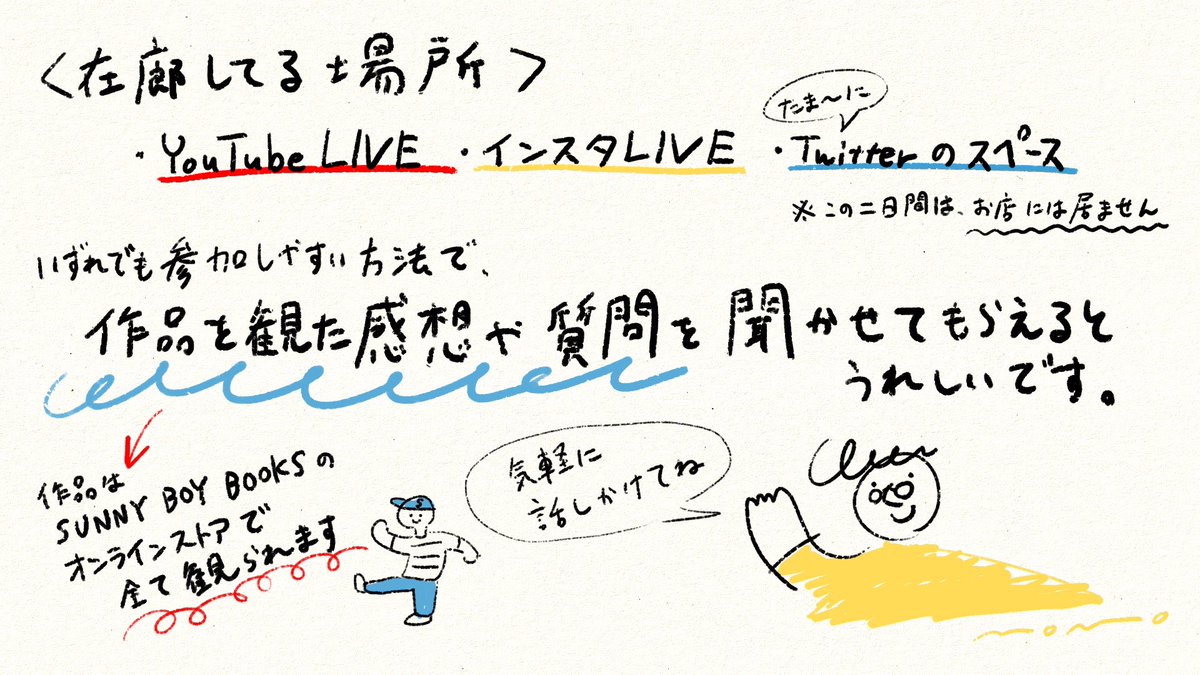 〈在廊してる場所〉
たま〜に
・YouTube LIVE ・インスタLIVE ・Twitterのスペース
※この二日間は、お店には居ません
いずれでも参加しやすい方法で、
作品を観た感想や質問を聞かせてもらえると
うれしいです。
作品は
SUNNY BOY BOOKSの
オンラインストアで
全て観られます
S
気軽に
話しかけてね